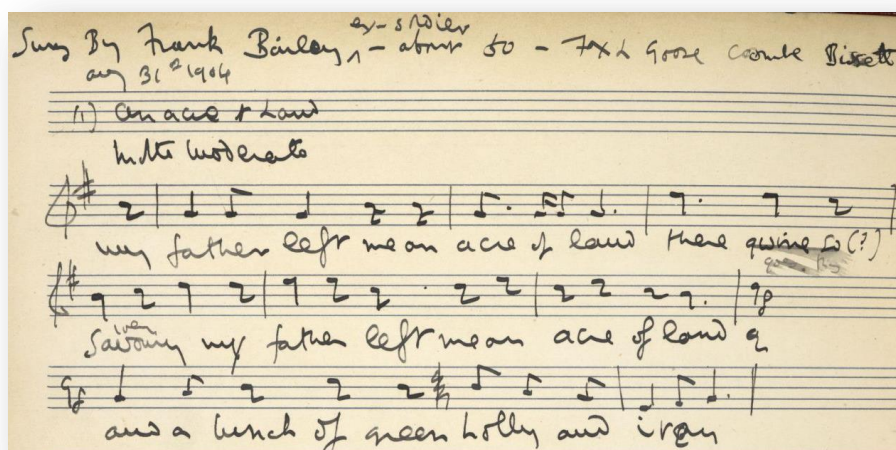 ex-soldier
Sung By Frank Bailey, ^ - about 50 - Fox & Goose Coombe Bissett
Aug 31st 1904
(1) An acre of Land
Molto moderato
my father left me an acre of land there gwine so (?)
ivery
my father left me an acre of land
and a bunch of green holly and ivery